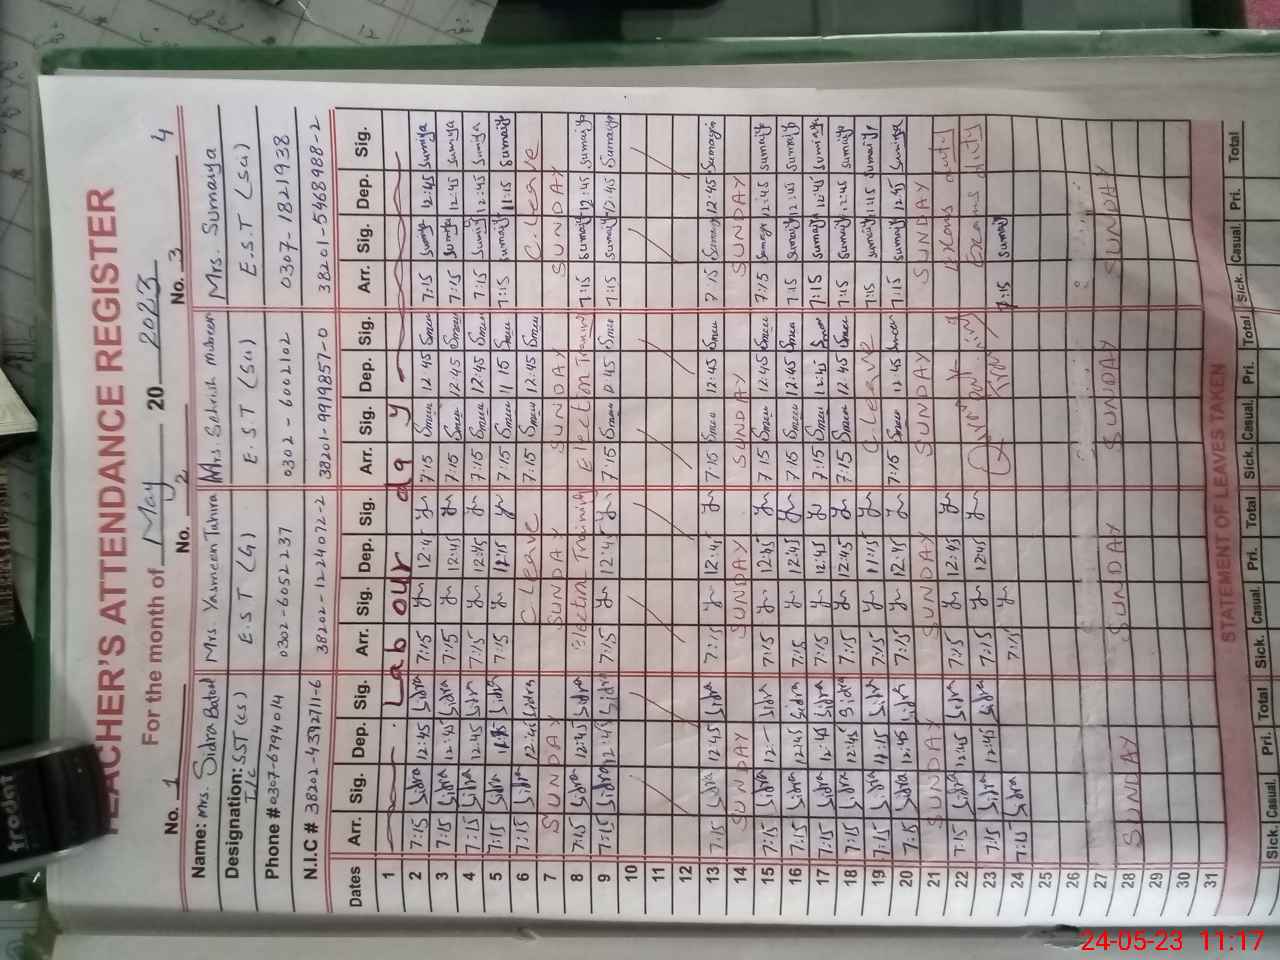 TEACHER'S ATTENDANCE REGISTER
For the month of May 2023
No. 1 No. 2 No. 3 4
Name: Mrs. Sidra Batool Mrs. Yasmeen Tahira Mrs. Sehrish Mubeen Mrs. Sumaiya
Designation: SST (cs) I/c E.S.T (G) E.S.T (Sci) E.S.T (Sci)
Phone # 0307-6794014 0302-6052237 0302-6002102 0307-1821938
N.I.C # 38202-4392711-6 38202-1224072-2 38201-9919857-0 38201-5468988-2
Dates Arr. Sig. Dep. Sig. Arr. Sig. Dep. Sig. Arr. Sig. Dep. Sig. Arr. Sig. Dep. Sig.
1 Labour day
2 7:15 Sidra 12:45 Sidra 7:15 12:4 7:15 12 45 7:15 Sumaya 12:45 Sumaya
3 7:15 Sidra 12:45 Sidra 7:15 12:45 7:15 12:45 7:15 Sumaya 12:45 Sumiya
4 7:15 Sidra 12:45 Sidra 7:15 12:45 7:15 12:45 7:15 Sumaiya 12:45 Sumiya
5 7:15 Sidra Sidra 7:15 7:15 11 15 7:15 Sumaiya 11:15 Sumaiya
6 7:15 Sidra 12:45 Sidra C Leave 7:15 12:45 C. Leave
7 SUNDAY SUNDAY SUNDAY SUNDAY
8 7:15 Sidra 12:45 Sidra Election Training Election Training 7:15 Sumaiya 12:45 Sumaiya
9 7:15 Sidra 12:45 Sidra 7:15 12:45 7:15 12:45 7:15 Sumaiya 12:45 Sumaiya
10
11
12
13 7:15 Sidra 12:45 Sidra 7:15 12:45 7:15 12:45 7:15 Sumaiya 12:45 Sumaiya
14 SUNDAY SUNDAY SUNDAY SUNDAY
15 7:15 Sidra Sidra 7:15 12:45 7 15 12:45 7:15 Sumaiya 12:45 Sumaiya
16 7:15 Sidra 12:45 Sidra 7:15 12:45 7 15 12:45 7:15 Sumaiya 12:45 Sumaiya
17 7:15 Sidra 12:45 Sidra 7:15 12:45 7:15 12:45 7:15 Sumaiya 12:45 Sumaiya
18 7:15 Sidra 12:45 Sidra 7:15 12:45 7:15 12:45 7:15 Sumaiya 12:45 Sumaiya
19 7:15 Sidra Sidra 7:15 11:15 C Leave 7:15 Sumaiya 11:15 Sumaiya
20 7:15 Sidra 12:45 Sidra 7:15 12:45 7:15 12:45 7:15 Sumaiya 12:45 Sumaiya
21 SUNDAY SUNDAY SUNDAY SUNDAY
22 7:15 Sidra 12:45 Sidra 7:15 12:45 Exams duty
23 7:15 Sidra 12:45 Sidra 7:15 12:45 Exams duty
24 7:15 Sidra 7:15 7:15 Sumaiya
25
26
27
28 SUNDAY SUNDAY SUNDAY SUNDAY
29
30
31
STATEMENT OF LEAVES TAKEN
Sick. Casual. Pri. Total Sick. Casual. Pri. Total Sick. Casual. Pri. Total Sick. Casual. Pri. Total
trodat
24-05-23 11:17